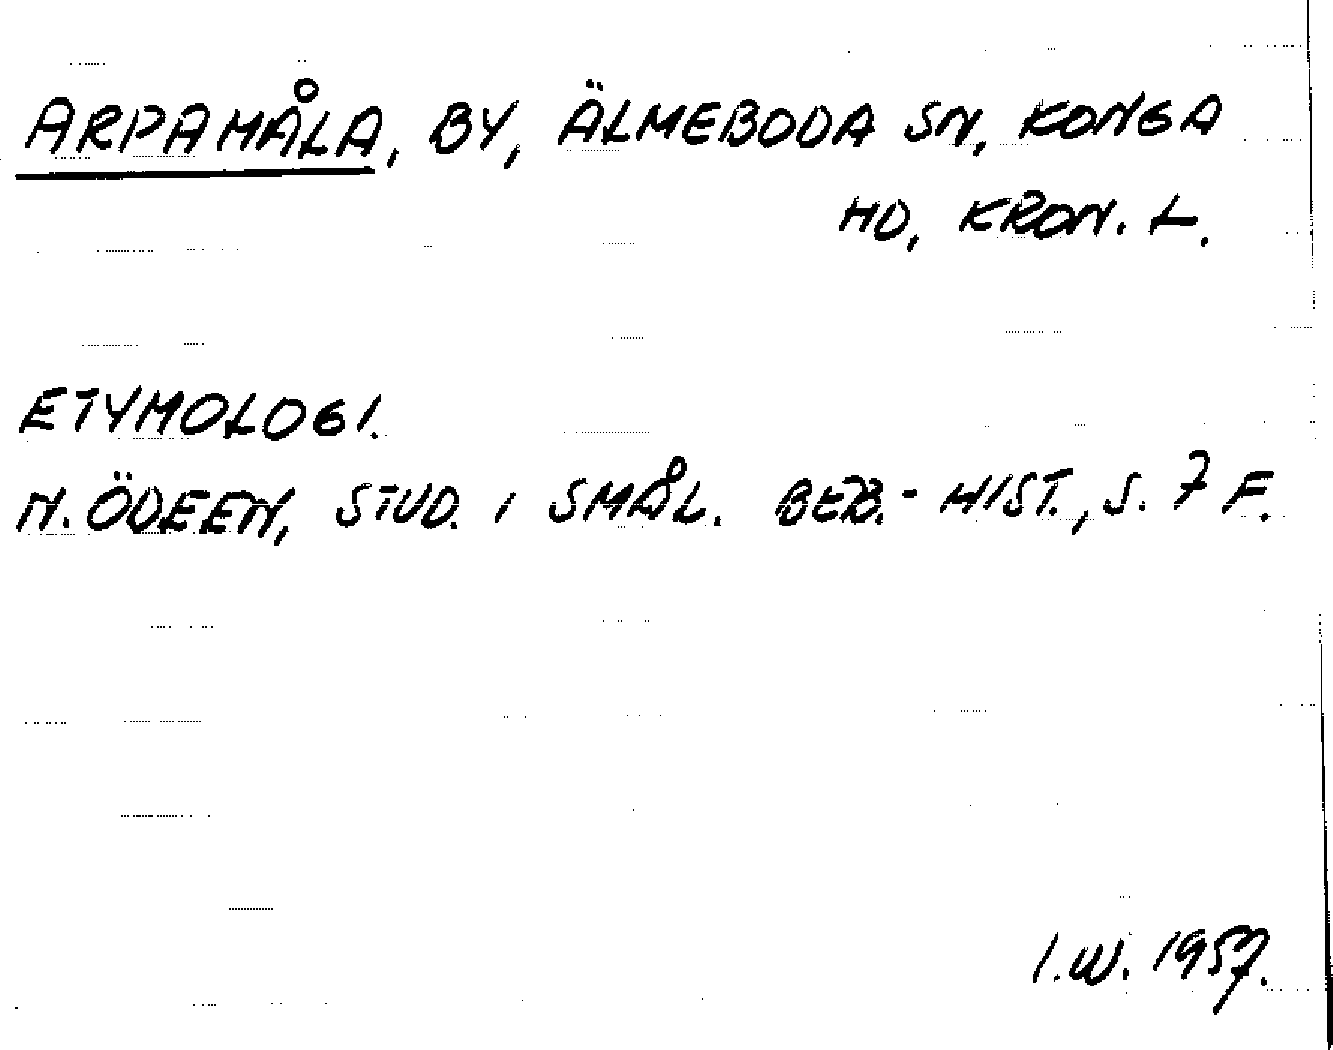 ARPAMÅLA, BY, ÄLMEBODA SN, KONGA
HD, KRON. L.
ETYMOLOGI.
N. ÖDEEN, STUD. I SMÅL. BEB.-HIST., S. 7 F.
I.W. 1957.